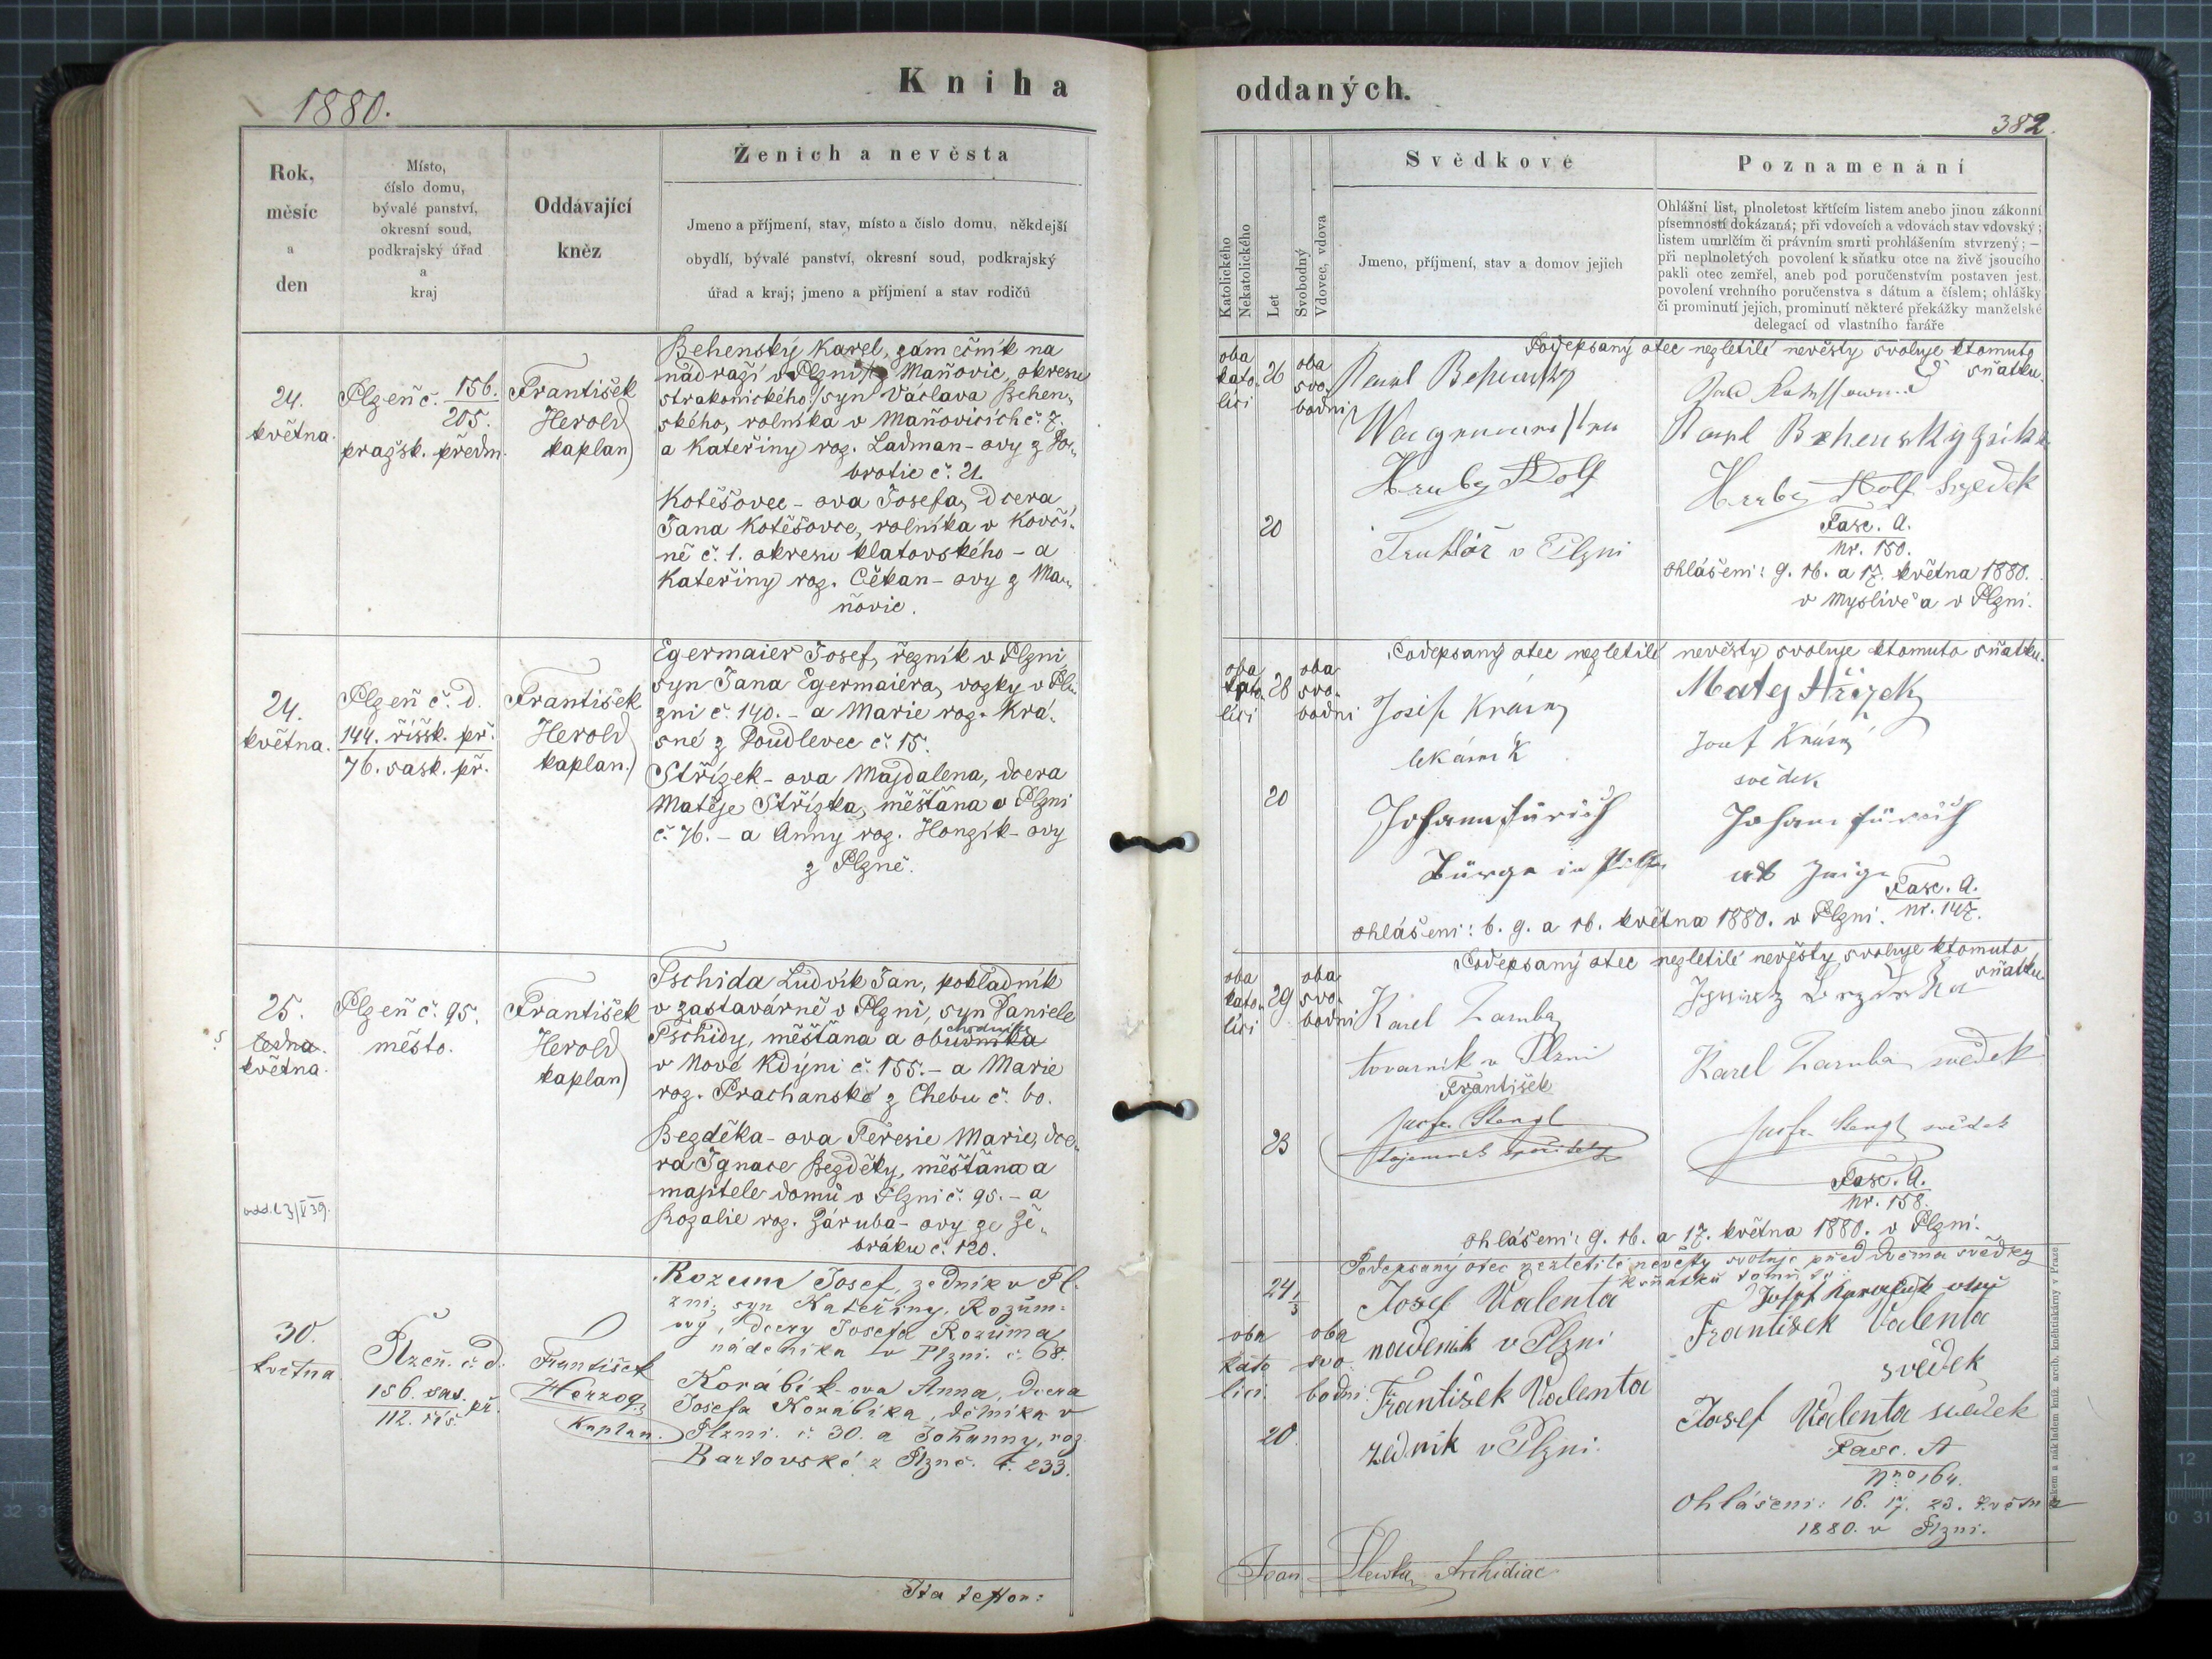 Kniha
oddaných.
1880.
382.
Rok,
měsíc
a
den
Místo,
číslo domu,
bývalé panství,
okresní soud,
podkrajský úřad
a
kraj
Oddávající
kněz
Ženich a nevěsta
Jmeno a příjmení, stav, místo a číslo domu, někdejší
obydlí, bývalé panství, okresní soud, podkrajský
úřad a kraj; jmeno a příjmení a stav rodičů
Katolického
Nekatolického
Let
Svobodný
Vdovec, vdova
Svědkové
Jmeno, příjmení, stav a domov jejich
Poznamenání
Ohlášní list, plnoletost křtícím listem anebo jinou zákonní
písemností dokázaná; při vdovcích a vdovách stav vdovský;
listem umrlčím či právním smrti prohlášením stvrzený; —
při neplnoletých povolení k sňatku otce na živě jsoucího
pakli otec zemřel, aneb pod poručenstvím postaven jest.
povolení vrchního poručenstva s dátum a číslem; ohlášky
či prominutí jejich, prominutí některé překážky manželské
delegací od vlastního faráře
24.
května.
Plzeň č. 156.
205.
pražsk. předm.
František
Herold
kaplan
Behenský Karel, zámečník na
nádraží v Plzni z Maňovic, okresu
strakonického, syn Václava Behen-
ského, rolníka v Maňovicích č. 7.
a Kateřiny roz. Ladman-ovy z Do-
brotic č. 21.
Kotěšovec-ova Josefa, dcera
Jana Kotěšovce, rolníka v Kovči-
ně č. 1. okresu klatovského - a
Kateřiny roz. Čekan-ovy z Ma-
ňovic.
oba
kato-
líci
26
oba
svo-
bodni
20
Podepsaný otec nezletilé nevěsty svoluje ktomuto
sňatku.
Karel Behenský
Hruby Adolf
Truhlář v Plzni
Karel Behenský
Hruby Adolf Svedek
Fasc. A.
Nr. 150.
Ohlášeni: 9. 16. a 17. května 1880.
v Myslívě a v Plzni.
24.
května.
Plzeň č. d.
144. říšsk. př.
76. sask. př.
František
Herold
kaplan.
Egermaier Josef, řezník v Plzni,
syn Jana Egermaiera, vozky v Pl-
zni č. 140. - a Marie roz. Krá-
sné z Poudlevec č. 15.
Střízek-ova Majdalena, dcera
Matěje Střízka, měšťana v Plzni
č. 76. - a Anny roz. Honzík-ovy
z Plzně.
oba
kato-
líci
28
oba
svo-
bodni
20
Podepsaný otec nezletilé nevěsty svoluje ktomuto sňatku.
Josef Krásný
lékárník
Johann
Matej Střízek
Josef Krásný
svědek
Johann
Fasc. A.
Nr. 147.
Ohlášeni: 6. 9. a 16. května 1880. v Plzni.
25.
ledna.
května.
Plzeň č. 95.
město.
František
Herold
kaplan
Tschida Ludvík Jan, pokladník
v zastavárně v Plzni, syn Daniele
Tschidy, měšťana a obchodníka
v Nové Kdýni č. 155. - a Marie
roz. Prachanské z Chebu č. 60.
Bezděka-ova Teresie Marie, dce-
ra Ignace Bezděky, měšťana a
majitele domů v Plzni č. 95. - a
Rozalie roz. Záruba-ovy ze Že-
bráku č. 120.
oba
kato-
líci
29
oba
svo-
bodni
23
Podepsaný otec nezletilé nevěsty svoluje ktomuto
sňatku
Karel Zaruba
tovarník v Plzni
František
Stengl
Karel Zaruba svědek
Stengl svědek
Fasc. A.
Nr. 158.
Ohlášeni: 9. 16. a 17. května 1880. v Plzni.
30.
května
Plzeň. č. d.
156. sas.
112. říš. př.
František
Herzog
Kaplan.
Rozum Josef, zedník v Pl-
zni, syn Kateřiny, Rozům-
ový, dcery Josefa Rozůma
nádeníka v Plzni. č. 68.
Korábík-ova Anna, dcera
Josefa Korábíka, dělníka v
Plzni. č. 30. a Johanny, roz
Bartovské z Plzně. č. 233.
24 1/3
oba
kato
líci.
oba
svo-
bodni.
20
Podepsaný otec nezletilé nevěsty svoluje před dvěma svědky
Josef Valenta
nadenik v Plzni
František Valenta
zedník v Plzni.
František Valenta
svědek
Josef Valenta svědek
Fasc. A
Nro 164.
Ohlášeni: 16. 17. 23. května
1880. v Plzni.
Ita testor:
Archidiac